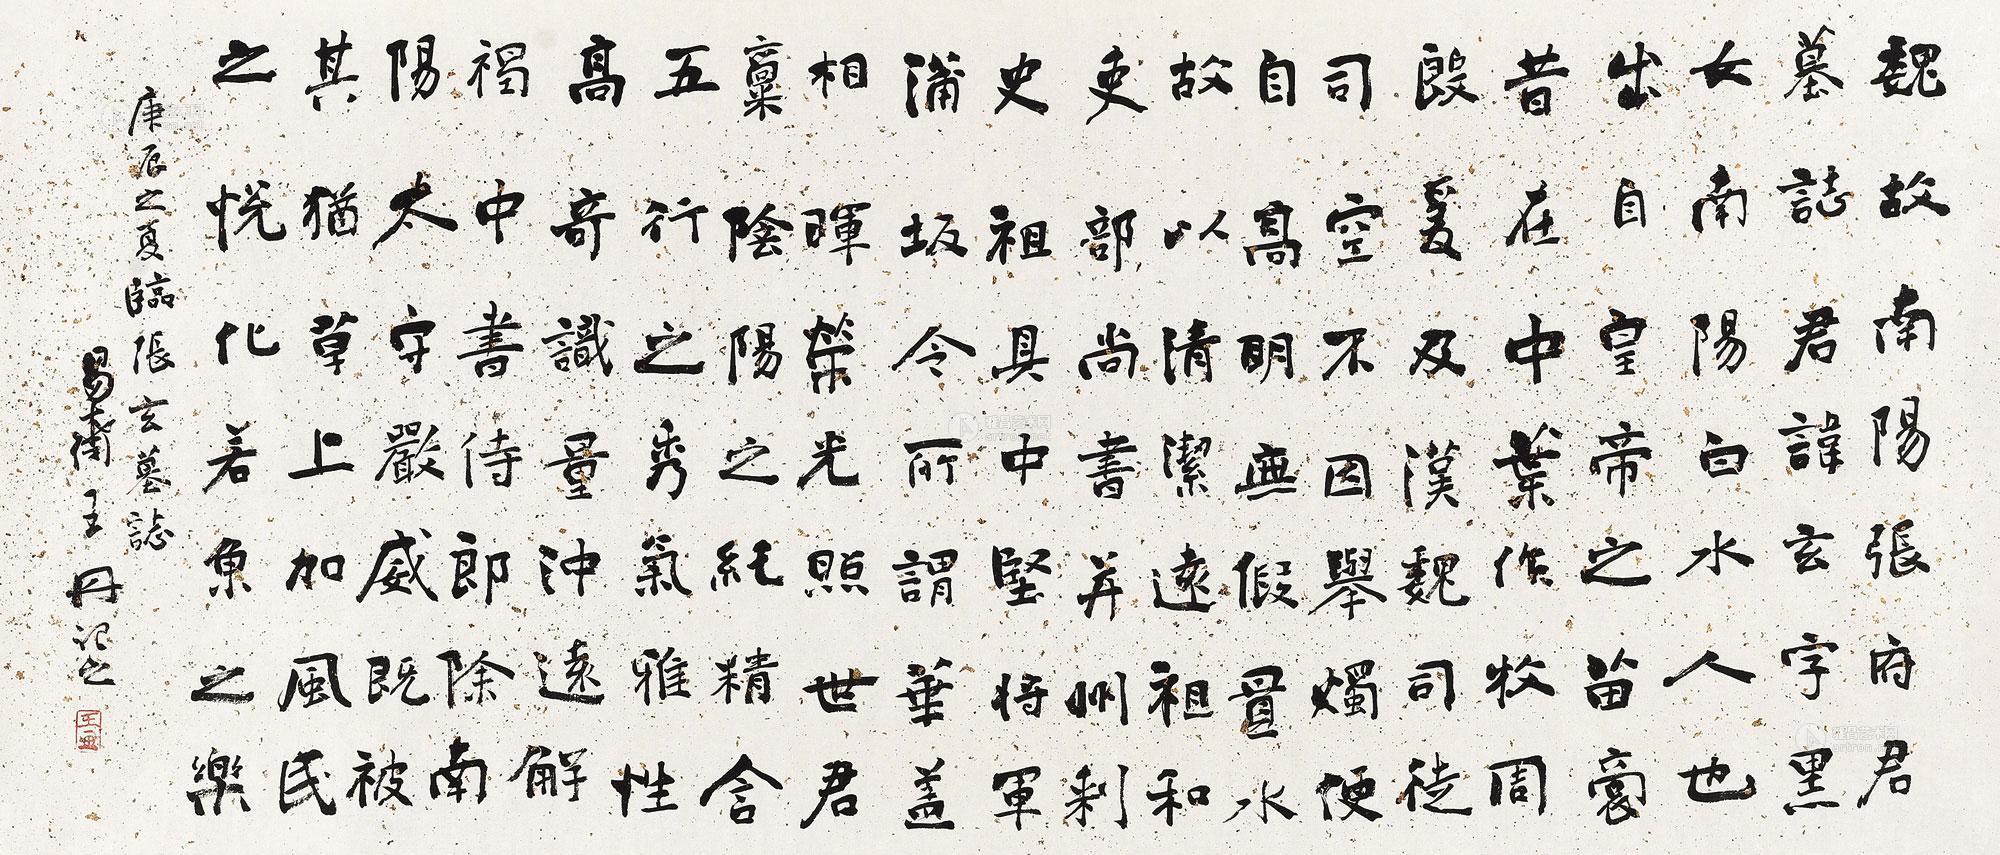 魏故南陽張府君
墓誌君諱玄字黑
女南陽白水人也
出自皇帝之苗裔
昔在中葉作牧周
殷爰及漢魏司徒
司空不因舉燭便
自高明無假置水
故以清潔遠祖和
吏部尚書并州刺
史祖具中堅將軍
蒲坂令所謂華蓋
相暉榮光照世君
稟陰陽之純精含
五行之秀氣雅性
高奇識量沖遠解
褐中書侍郎除南
陽太守嚴威既被
其猶草上加風民
之悅化若魚之樂
庚辰之夏臨張玄墓誌
王丹記之